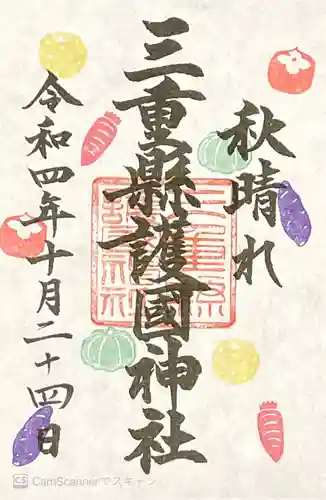 秋晴れ
三重縣護國神社
令和四年十月二十四日
CS CamScannerでスキャン